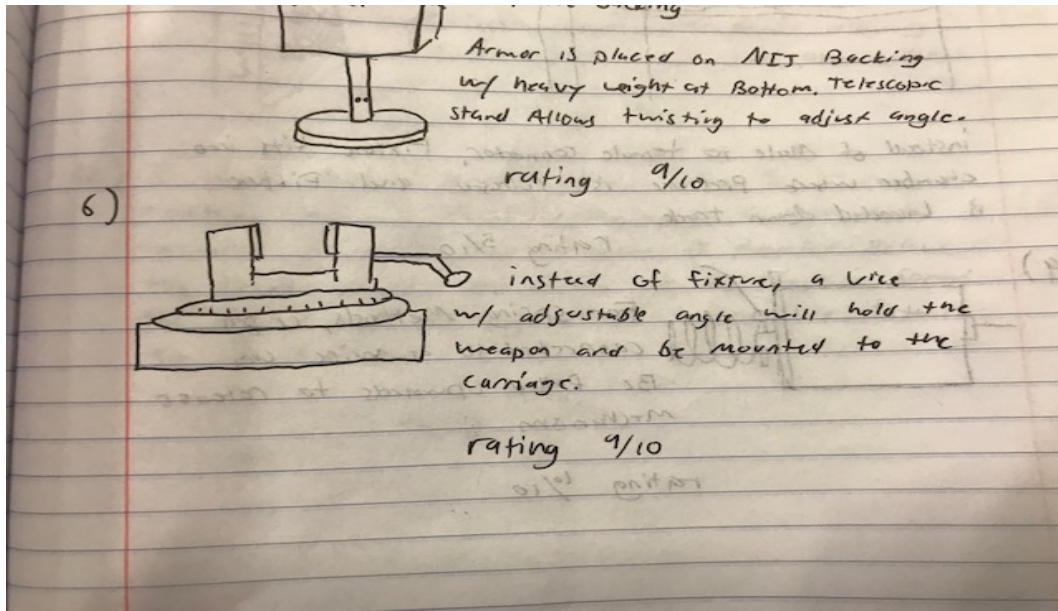 Armor is placed on NIJ Backing
w/ heavy weight at Bottom. Telescopic
stand Allows twisting to adjust angle.
rating 9/10
6)
instead of fixture, a vice
w/ adjustable angle will hold the
weapon and be mounted to the
carriage.
rating 9/10